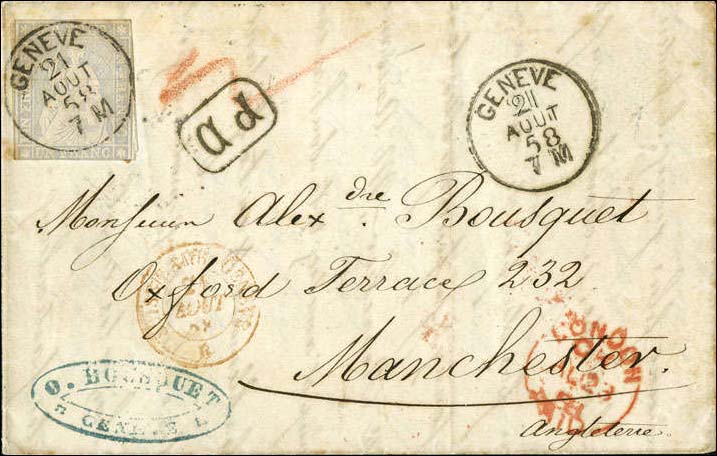 GENEVE
21
AOUT
58
7 M
LA FRANC
a d
GENEVE
21
AOUT
58
7 M
Monsieur Alex dre. Bousquet
Oxford Terrace 232
Manchester.
Angleterre.
AOUT
LONDON
GENEVE